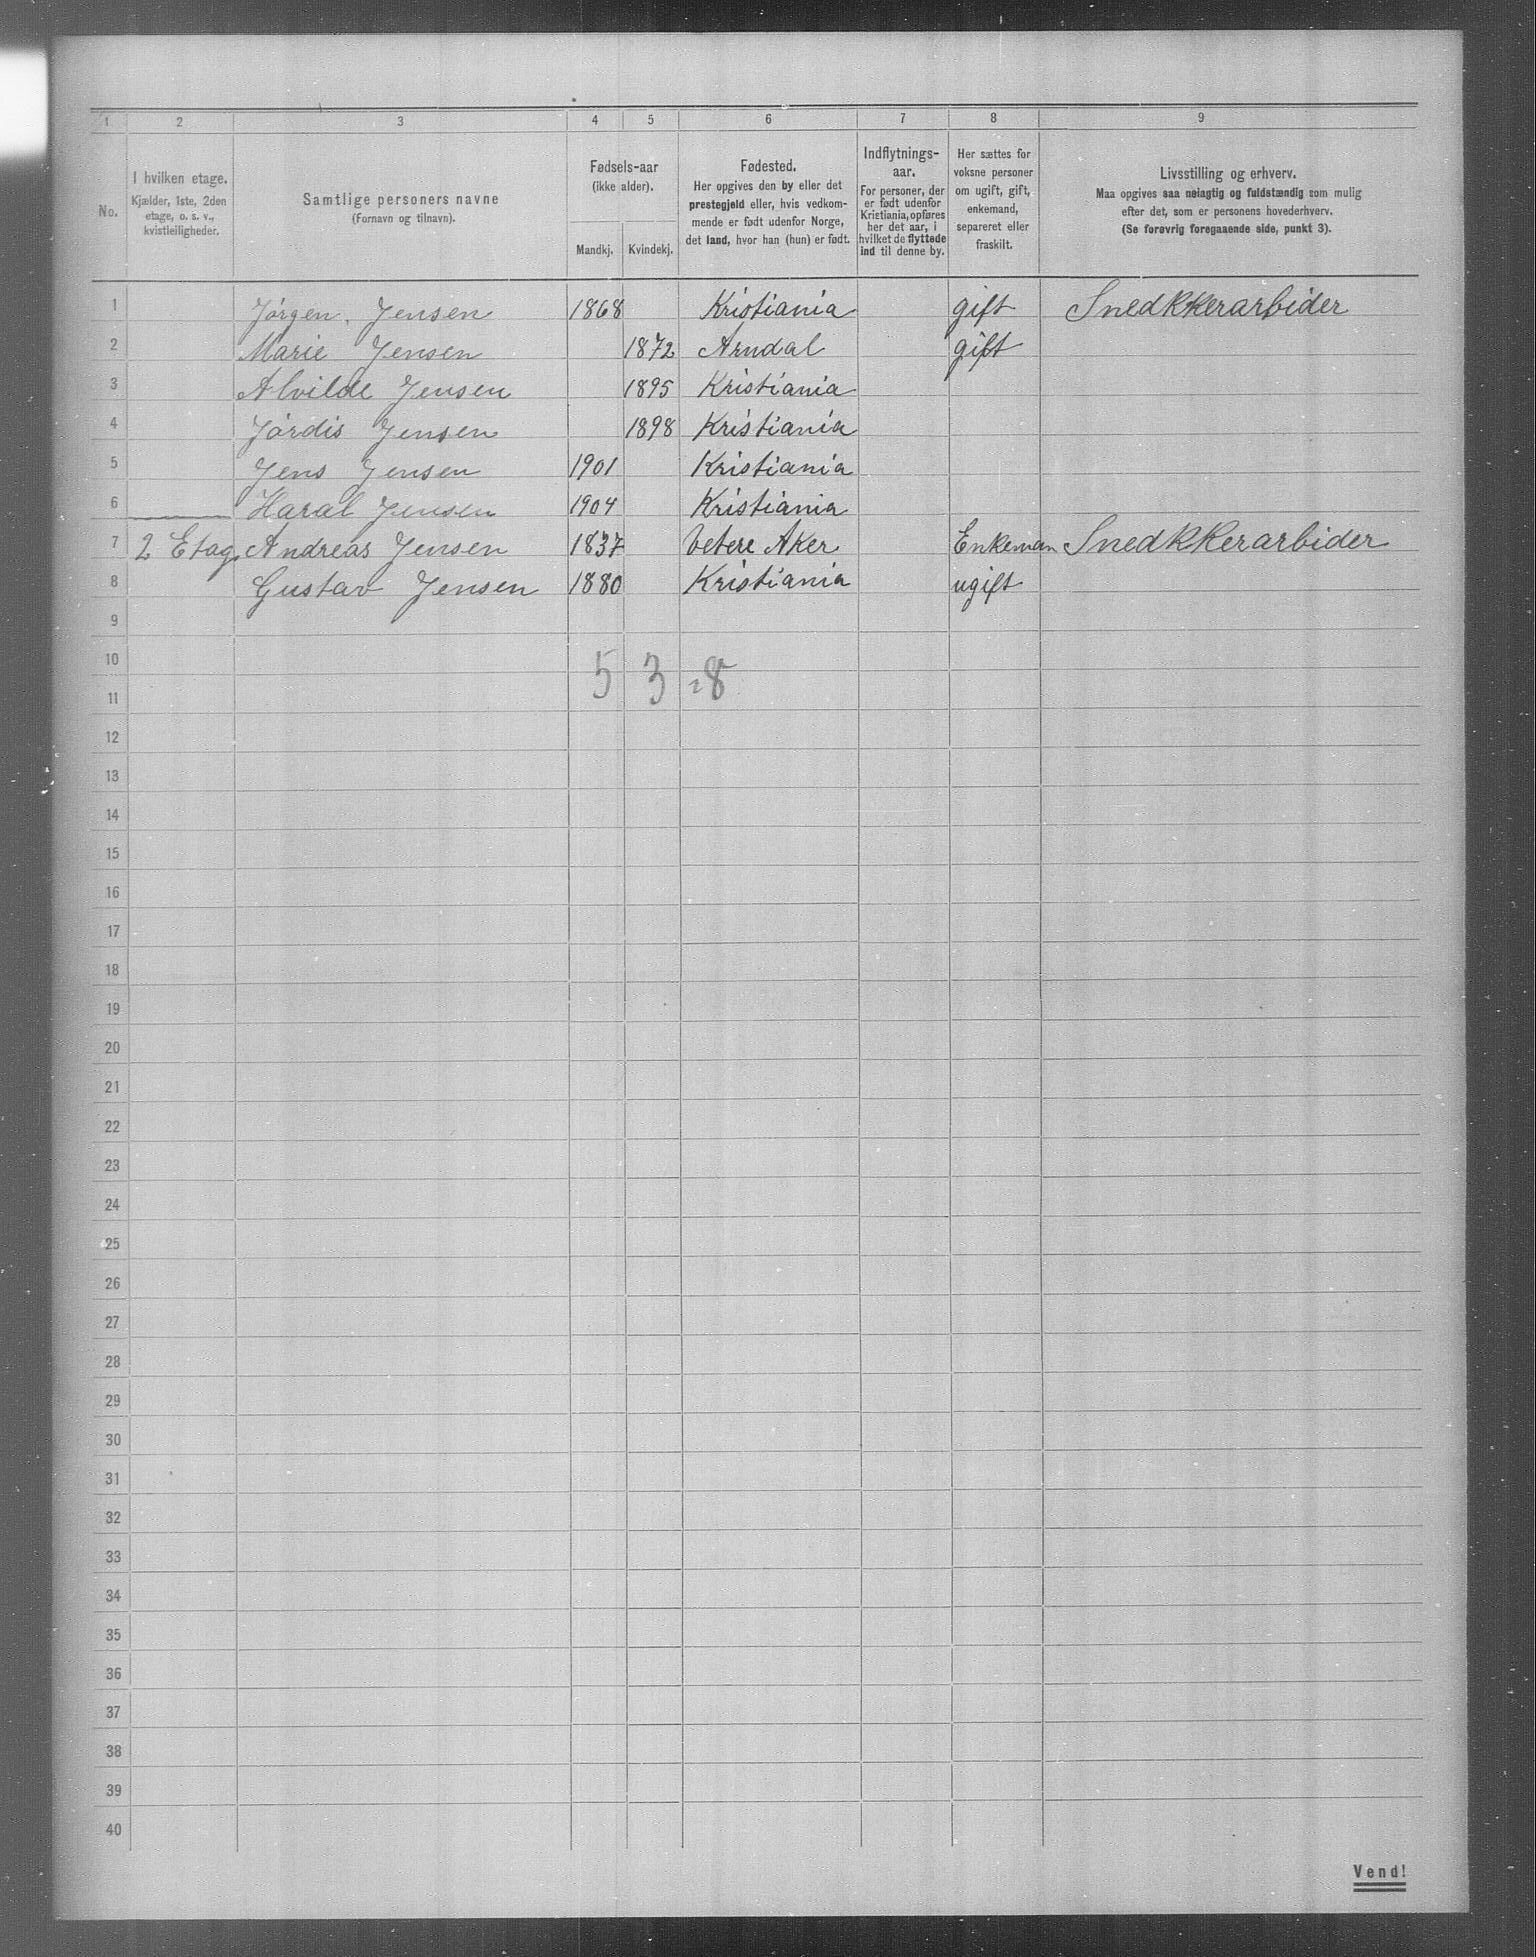 1 2 3 4 5 6 7 8 9
No.
I hvilken etage.
Kjælder, 1ste, 2den
etage, o. s. v.,
kvistleiligheder.
Samtlige personers navne
(Fornavn og tilnavn).
Fødsels-aar
(ikke alder).
Mandkj. Kvindekj.
Fødested.
Her opgives den by eller det
prestegjeld eller, hvis vedkom-
mende er født udenfor Norge,
det land, hvor han (hun) er født.
Indflytnings-
aar.
For personer, der
er født udenfor
Kristiania, opføres
her det aar, i
hvilket de flyttede
ind til denne by.
Her sættes for
voksne personer
om ugift, gift,
enkemand,
separeret eller
fraskilt.
Livsstilling og erhverv.
Maa opgives saa nøiagtig og fuldstændig som mulig
efter det, som er personens hovederhverv.
(Se forøvrig foregaaende side, punkt 3).
1 Jørgen, Jensen 1868 Kristiania gift Snedkkerarbider
2 Marie Jensen 1872 Arndal gift
3 Alvilde Jensen 1895 Kristiania
4 Jørdis Jensen 1898 Kristiania
5 Jens Jensen 1901 Kristiania
6 Haral Jensen 1904 Kristiania
7 2 Etag. Andreas Jensen 1837 Vetere Aker Enkeman Snedkkerarbider
8 Gustav Jensen 1880 Kristiania ugift
9
10 5 3 = 8
11
12
13
14
15
16
17
18
19
20
21
22
23
24
25
26
27
28
29
30
31
32
33
34
35
36
37
38
39
40
Vend!